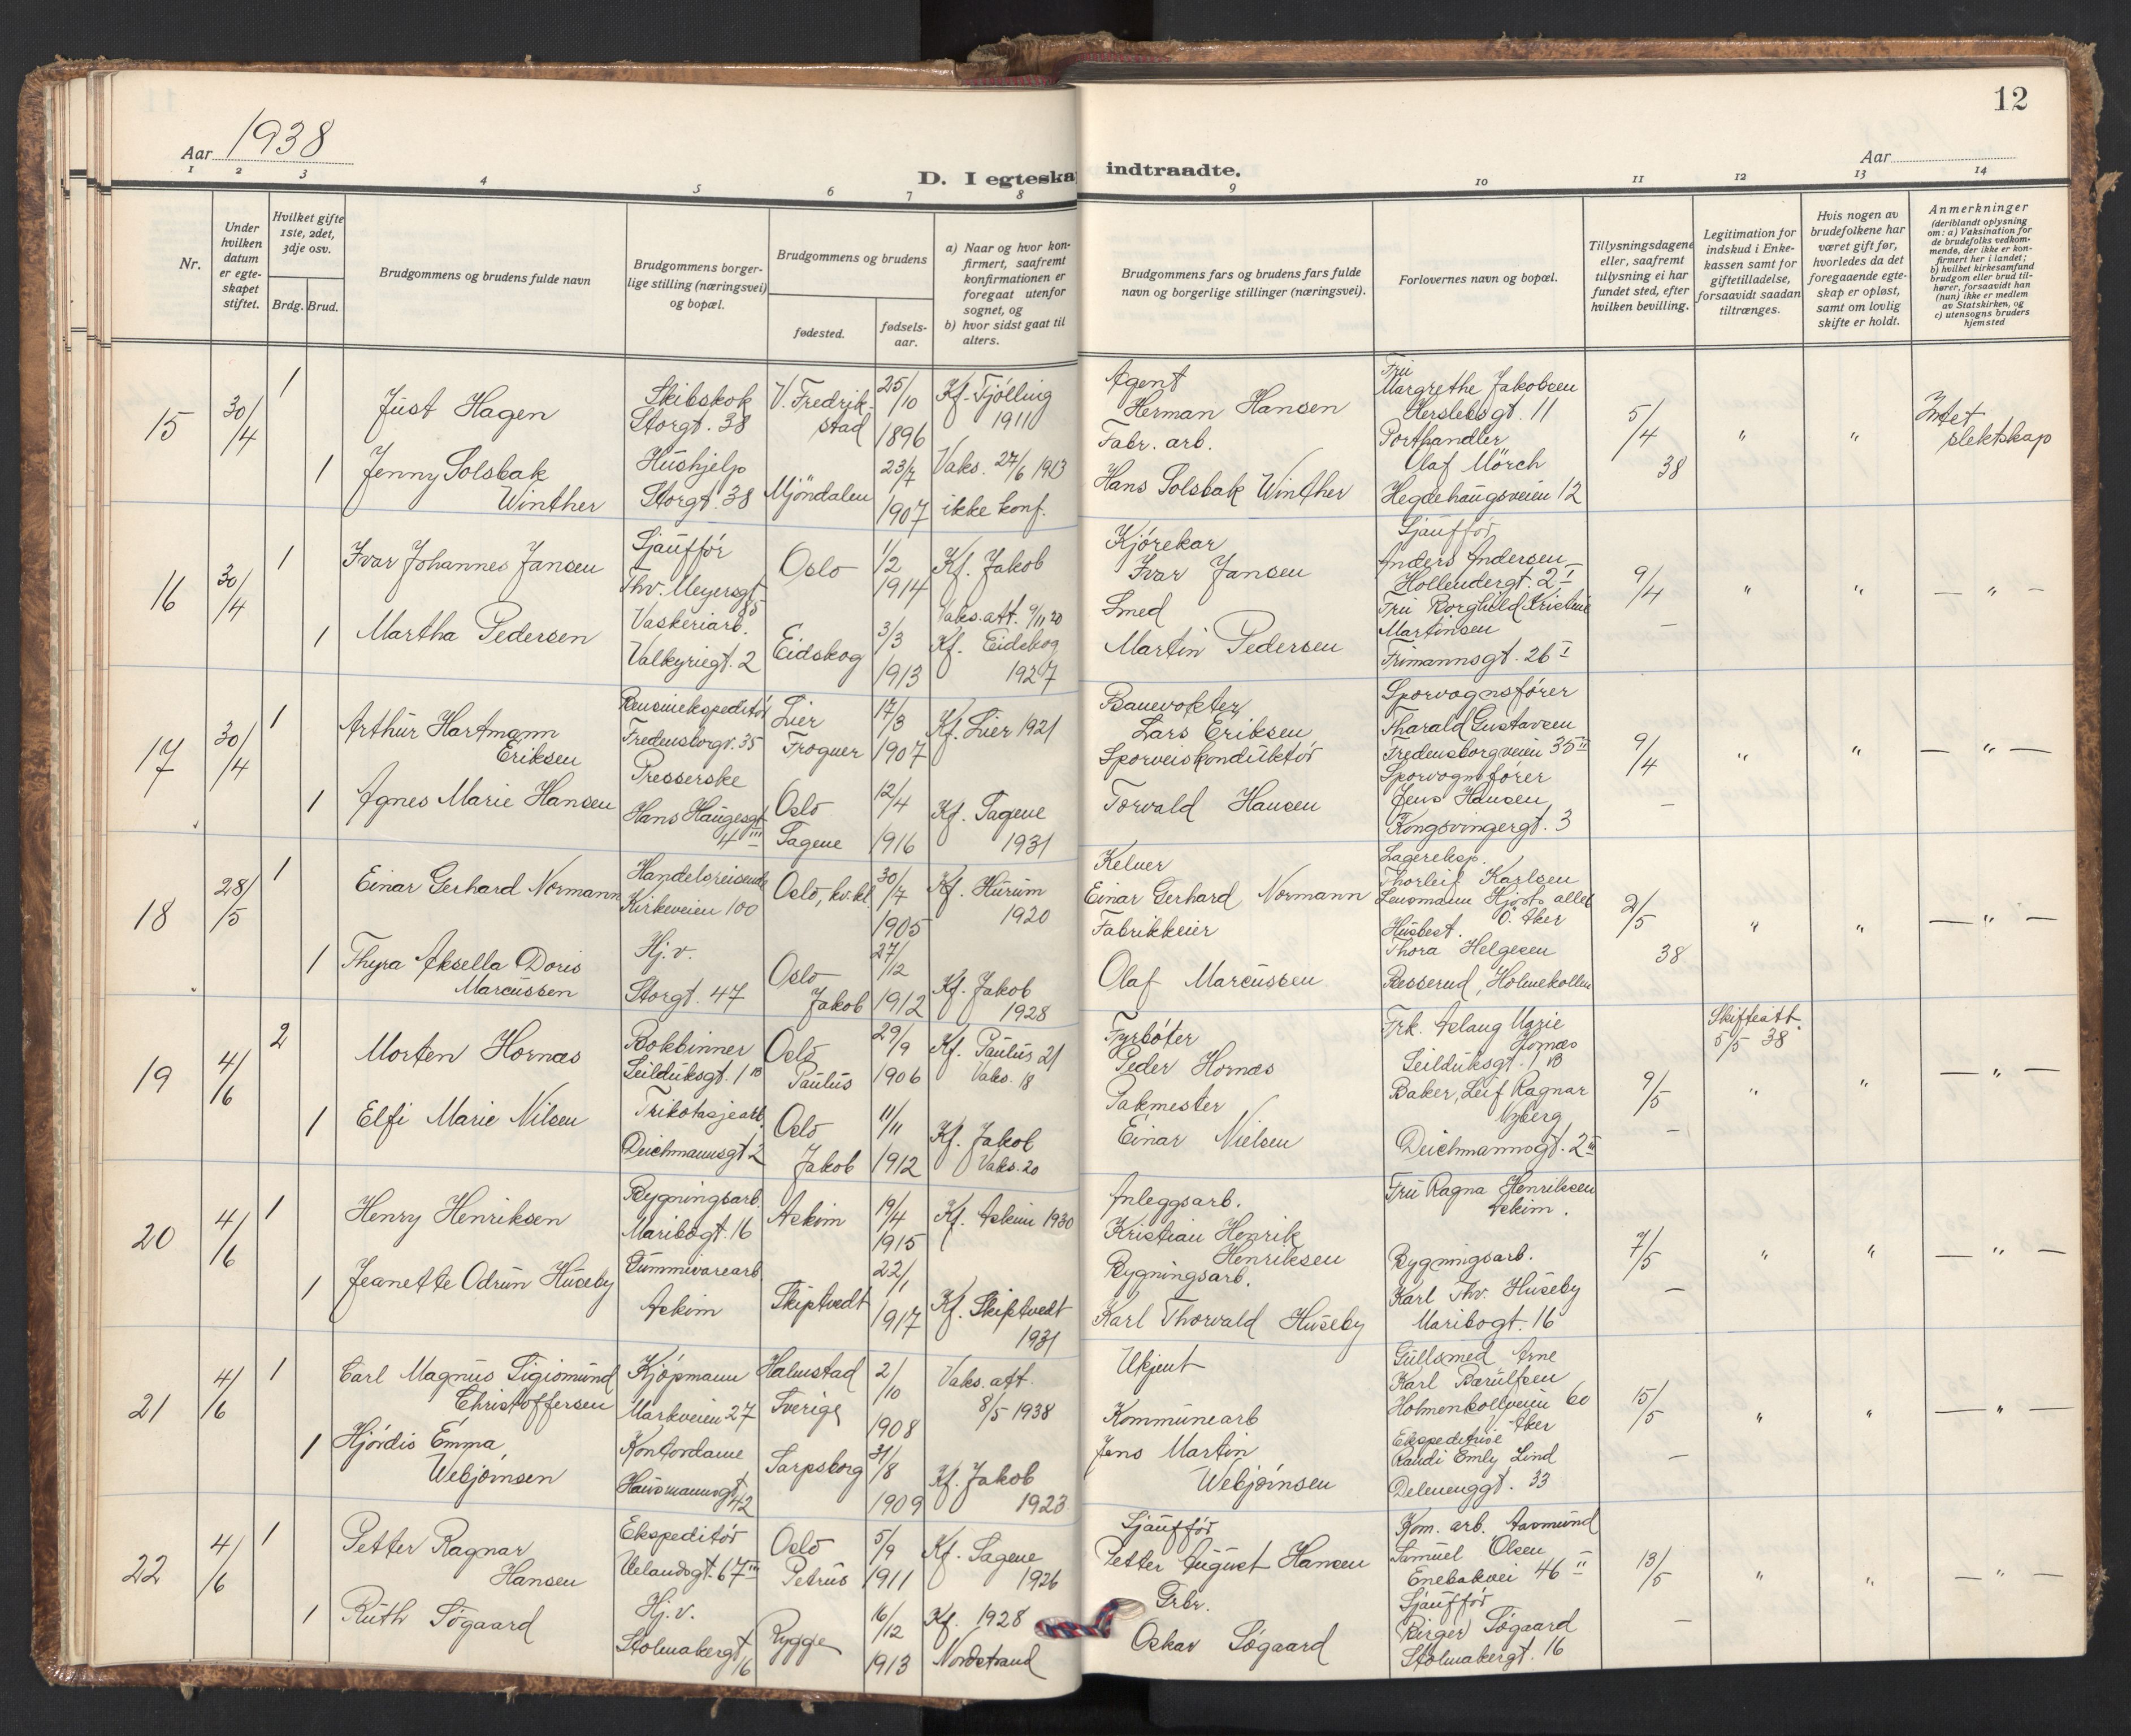 12
Aar 1938
Aar
D. I egteska
indtraadte.
1 2 3 4 5 6 7 8 9 10 11 12 13 14
Nr.
Under hvilken datum er egteskapet stiftet.
Hvilket gifte 1ste, 2det, 3dje osv.
Brdg. Brud.
Brudgommens og brudens fulde navn
Brudgommens borgerlige stilling (næringsvei) og bopæl.
Brudgommens og brudens
fødested.
fødselsaar.
a) Naar og hvor konfirmert, saafremt konfirmationen er foregaat utenfor sognet, og
b) hvor sidst gaat til alters.
Brudgommens fars og brudens fars fulde navn og borgerlige stillinger (næringsvei).
Forlovernes navn og bopæl.
Tillysningsdagene eller, saafremt tillysning ei har fundet sted, efter hvilken bevilling.
Legitimation for indskud i Enkekassen samt for giftetilladelse, forsaavidt saadan tiltrænges.
Hvis nogen av brudefolkene har været gift før, hvorledes da det foregaaende egteskap er opløst, samt om lovlig skifte er holdt.
Anmerkninger
(deriblandt oplysning om: a) Vaksination for de brudefolks vedkommende, der ikke er konfirmert her i landet; b) hvilket kirkesamfund brudgom eller brud tilhører, forsaavidt han (hun) ikke er medlem av Statskirken, og c) utensogns bruders hjemsted
15
30/4
1
Just Hagen
Skibskok
Storgt. 38
V. Fredrikstad
25/10 1896
Kf. Tjølling 1911
Agent
Herman Hansen
Fru
Margrethe Jakobsen
Herslebsgt. 11
5/4 38
"
"
Intet slektskap
1
Jenny Solsbak Winther
Hushjelp
Storgt. 38
Mjöndalen
23/7 1907
Vaks. 27/6 1913
ikke konf.
Fabr. arb.
Hans Solsbak Winther
Porthandler
Olaf Mörch
Hegdehaugsveien 12
16
30/4
1
Ivar Johannes Jansen
Sjauffør
Thv. Meyersgt. 85
Oslo
1/2 1914
Kf. Jakob
Vaks.att. 9/11 20
Kjørekar
Ivar Jansen
Sjauffør
Anders Andersen
Hollendergt. 2 I
9/4 –
"
"
— " —
1
Martha Pedersen
Vaskeriarb.
Valkyriegt. 2
Eidskog
3/3 1913
Kf. Eidskog 1927
Smed
Martin Pedersen
Fru Borghild Kristine
Martinsen
Frimannsgt. 26 I
17
30/4
1
Arthur Hartmann Eriksen
Bensinekspeditør
Fredensborgv. 35
Lier
Frogner
17/3 1907
Kf. Lier 1921
Banevokter
Lars Eriksen
Sporvognsfører
Tharald Gustavsen
Fredensborgveien 35 II
9/4 –
"
"
— " —
1
Agnes Marie Hansen
Presserske
Hans Haugesgt. 4 III
Oslo
Sagene
12/4 1916
Kf. Sagene 1931
Sporveiskonduktør
Torvald Hansen
Sporvognsfører
Jens Hansen
Kongsvingergt. 3
18
28/5
1
Einar Gerhard Normann
Handelsreisende
Kirkeveien 100
Oslo, kv.kl.
30/7 1905
Kf. Hurum 1920
Kelner
Einar Gerhard Normann
Lagereksp.
Thorleif Karlsen
Lensmann Hjorts allé
Ö. Aker
2/5 38
"
"
— " —
1
Thyra Aksella Doris Marcussen
Hj.v.
Storgt. 47
Oslo
Jakob
27/12 1912
Kf. Jakob 1928
Fabrikkeier
Olaf Marcussen
Husbest.
Thora Helgesen
Besserud, Holmekollen
19
4/6
2
Morten Hornæs
Bokbinner
Seilduksgt. 1 B
Oslo
Paulus
29/9 1906
Kf. Paulus 21
Vaks. 18
Fyrbøter
Peder Hornæs
Frk. Aslaug Marie Hornæs
Seilduksgt. 1 B
9/5 –
Skifteatt. 5/5 38
"
"
— " —
1
Elfi Marie Nilsen
Trikotasjearb.
Deichmannsgt 2
Oslo
Jakob
11/11 1912
Kf. Jakob
Vaks. 20
Pakmester
Einar Nielsen
Baker, Leif Ragnar Nyberg
Deichmannsgt. 2 III
20
4/6
1
Henry Henriksen
Bygningsarb.
Maribogt. 16
Askim
19/4 1915
Kf. Askim 1930
Anleggsarb.
Kristian Henrik Henriksen
Fru Ragna Henriksen
Askim.
7/5 –
"
"
— " —
1
Jeanette Odrun Huseby
Gummivarearb
Askim
Skiptvedt
22/1 1917
Kf. Skiptvedt 1931
Bygningsarb.
Karl Thorvald Huseby
Bygningsarb.
Karl Thv. Huseby
Maribogt. 16
21
4/6
1
Carl Magnus Sigismund Christoffersen
Kjøpmann
Markveien 27
Halmstad
Sverige
2/10 1908
Vaks. att. 8/5 1938
Ukjent
Gullsmed Arne
Karl Bærulfsen
Holmenkollveien 60
Aker
15/5 –
"
"
— " —
1
Hjørdis Emma Webjørnsen
Kontordame
Hausmannsgt. 42
Sarpsborg
31/8 1909
Kf. Jakob 1923
Kommunearb
Jens Martin Webjørnsen
Ekspeditrise
Randi Emly Lind
Delenenggt. 33
22
4/6
1
Petter Ragnar Hansen
Ekspeditør
Uelandsgt. 67 III
Oslo
Petrus
5/9 1911
Kf. Sagene 1926
Sjauffør
Petter August Hansen
Kom. arb. Aasmund
Samuel Olsen
Enebakvei 46 II
13/5 –
"
"
— " —
1
Ruth Søgaard
Hj.v.
Stolmakergt 16
Rygge
16/12 1913
Kf. 1928
Nordstrand
Grbr.
Oskar Søgaard
Sjauffør
Birger Søgaard
Stolmakergt. 16